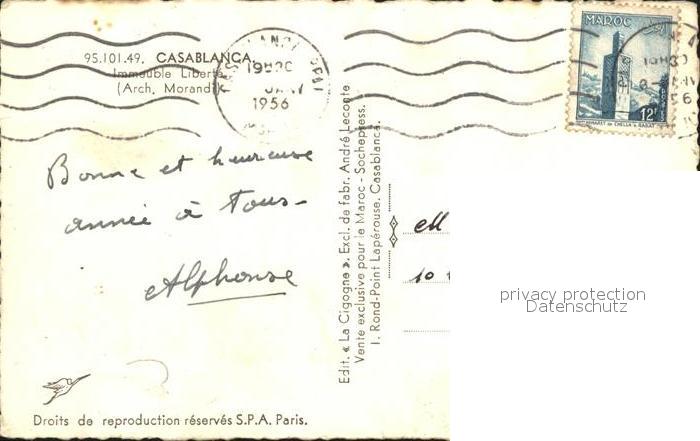 95.101.49. CASABLANCA
Immeuble Liberté
(Arch. Morandi)
19H30
JANV
1956
MAROC
12F
MINARET de CHELLA à RABAT
Bonne et heureuse
année à tous-
Alphonse
Edit. « La Cigogne ». Excl. de fabr. André Leconte
Vente exclusive pour le Maroc - Sochepress.
1, Rond-Point Lapérouse. Casablanca.
M
10
privacy protection
Datenschutz
Droits de reproduction réservés S.P.A. Paris.